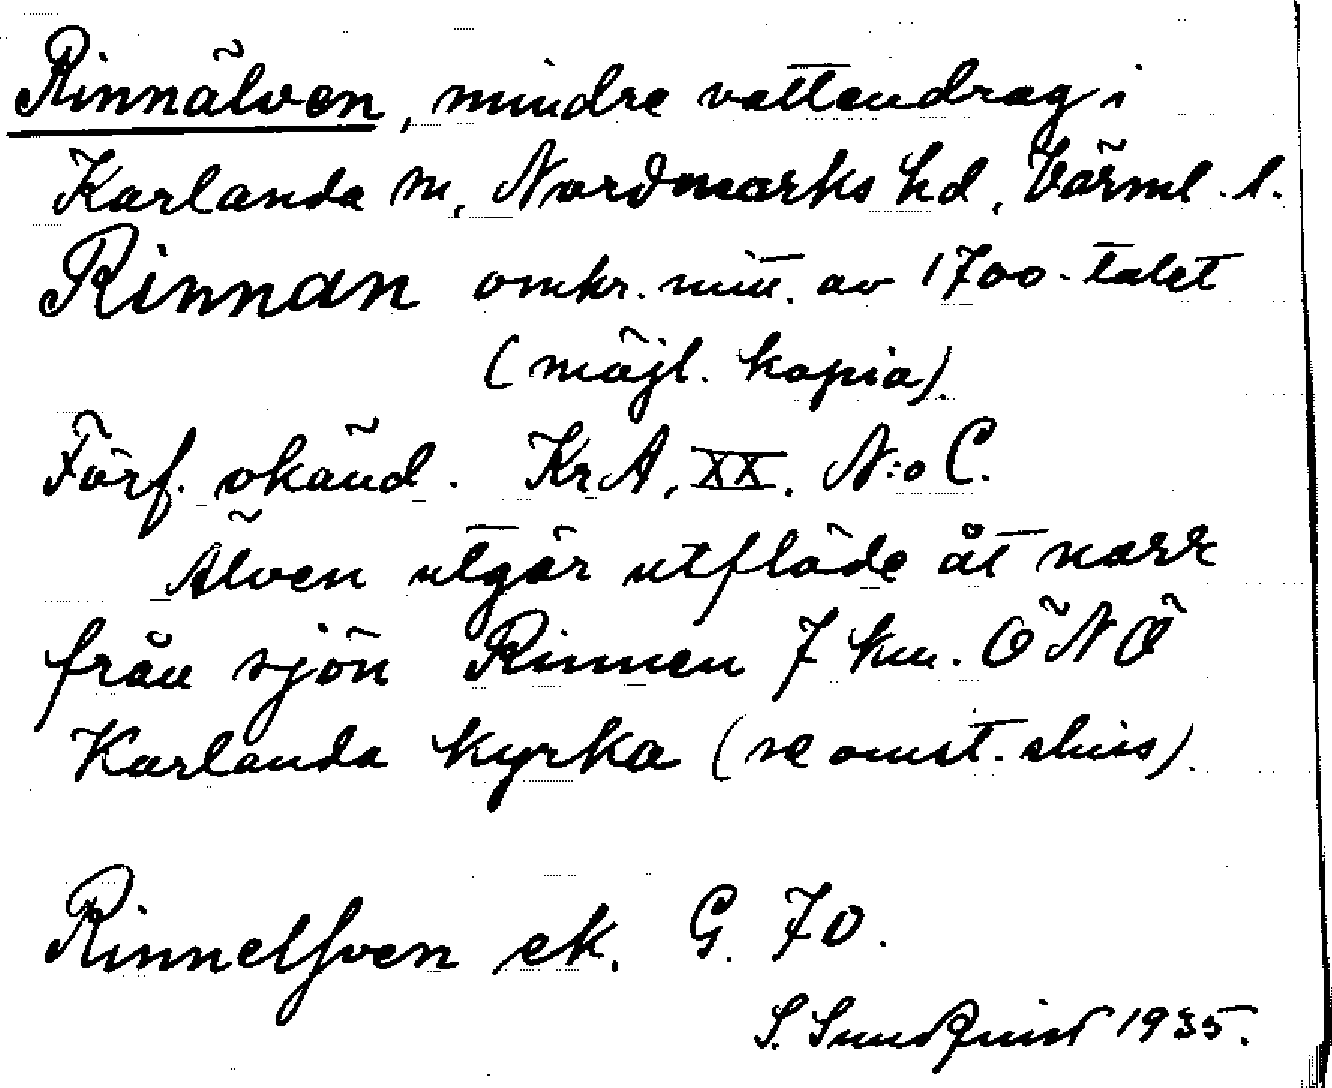 Rinnälven, mindre vattendrag i
Karlanda sn, Nordmarks hd, Värml. l.
Rinnan omkr. mitt. av 1700-talet
(möjl. kopia).
Förf. okänd. KrA, XX. N:o C.
Älven utgör utflöde åt norr
från sjön Rinnen 7 km. ÖNÖ
Karlanda kyrka (se omst. skiss).
Rinnelfven ek. G. 70.
S. Sundquist 1935.